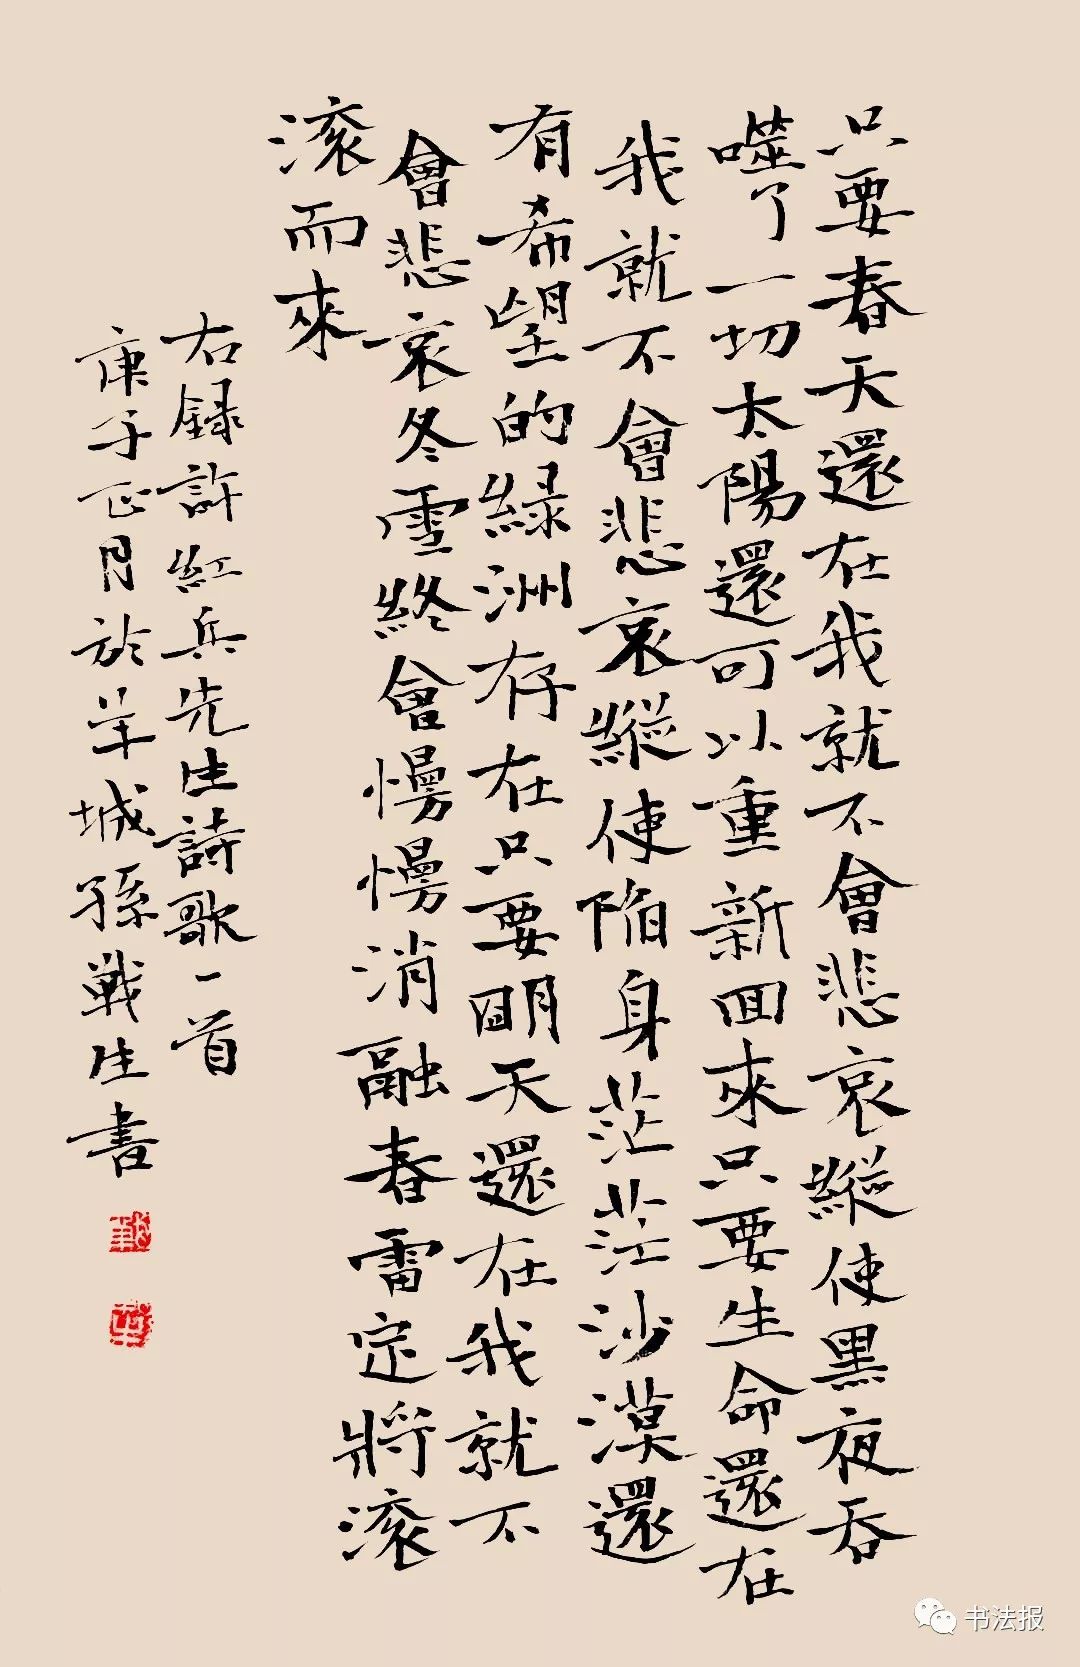 只要春天還在我就不會悲哀縱使黑夜吞
噬了一切太陽還可以重新回來只要生命還在
我就不會悲哀縱使陷身茫茫沙漠還
有希望的綠洲存在只要明天還在我就不
會悲哀冬雪終會慢慢消融春雷定將滾
滾而來
右録許紅兵先生詩歌一首
庚子正月於羊城孫戰生書
书法报